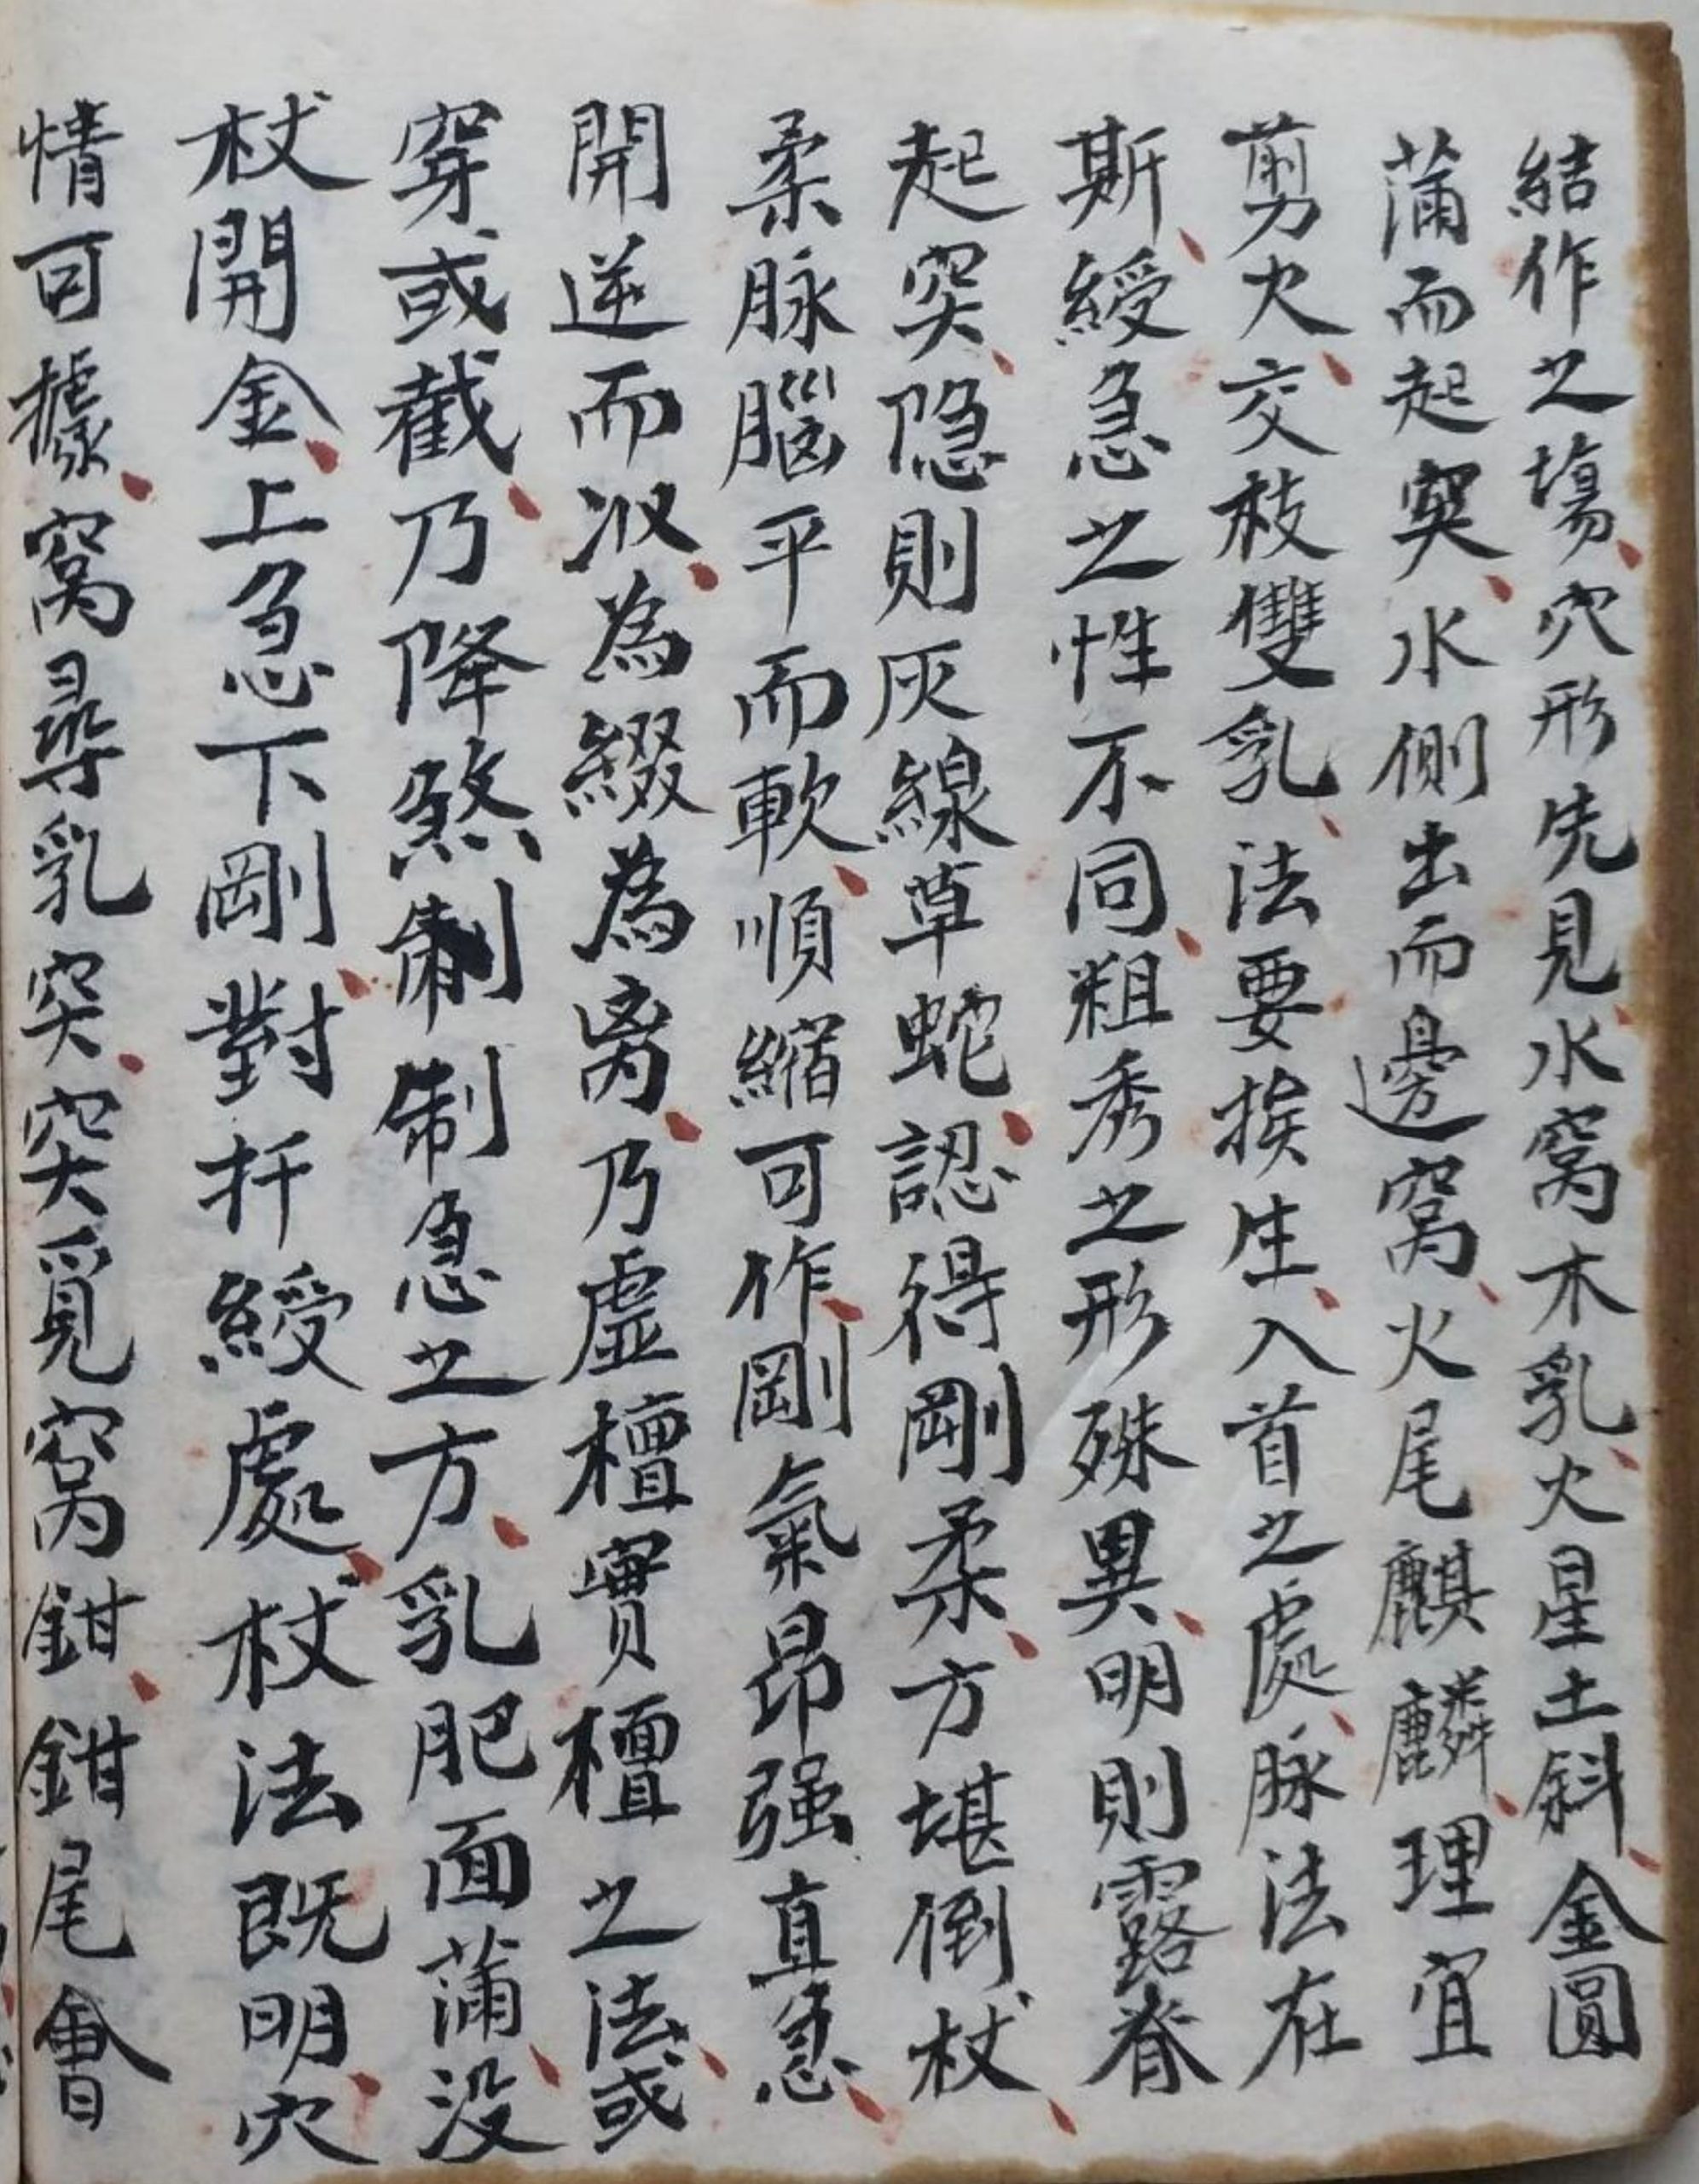 結作之塲穴形先見水窩木乳火星土斜金圓
蒲而起突水側出而邊窩火尾麒麟理宜
剪火交枝雙乳法要挨生入首之處脉法在
斯綬急之性不同粗秀之形殊異明則露脊
起突隐則灰線草蛇認得剛柔方堪倒杖
柔脉腦平而軟順縮可作剛氣昂强直急
開逆而汄為綴為离乃虛檀實檀之法或
穿或截乃降煞制制急之方乳肥面蒲没
杖開金上急下剛對扦綬處杖法既明穴
情可據窩尋乳突突覓窩鉗鉗尾會